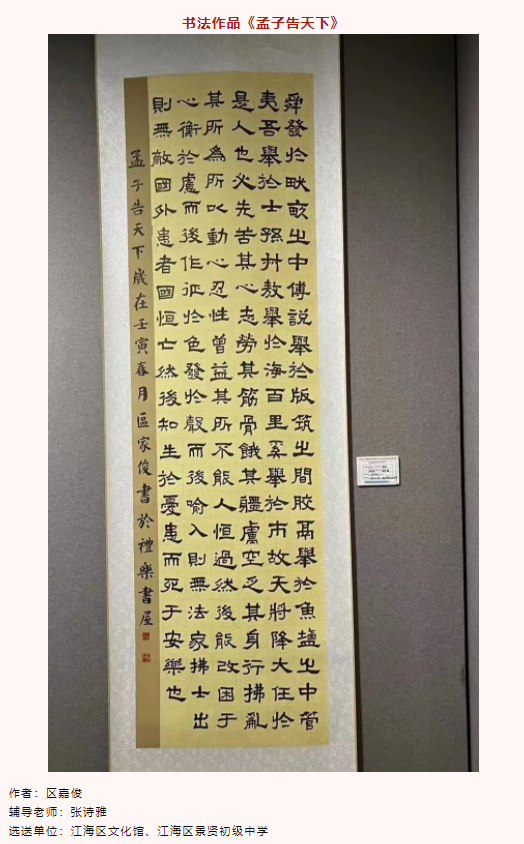 书法作品《孟子告天下》
舜發於畎畝之中傅說舉於版筑之間膠鬲舉於魚鹽之中管
夷吾舉於士孫叔敖舉於海百里奚舉於市故天將降大任於
是人也必先苦其心志勞其筋骨餓其體膚空乏其身行拂亂
其所為所以動心忍性曾益其所不能人恒過然後能改困于
心衡於慮而後作征於色發於聲而後喻入則無法家拂士出
則無敵國外患者國恒亡然後知生於憂患而死于安樂也
孟子告天下歲在壬寅春月區家俊書於禮樂書屋
作者：区嘉俊
辅导老师：张诗雅
选送单位：江海区文化馆、江海区景贤初级中学